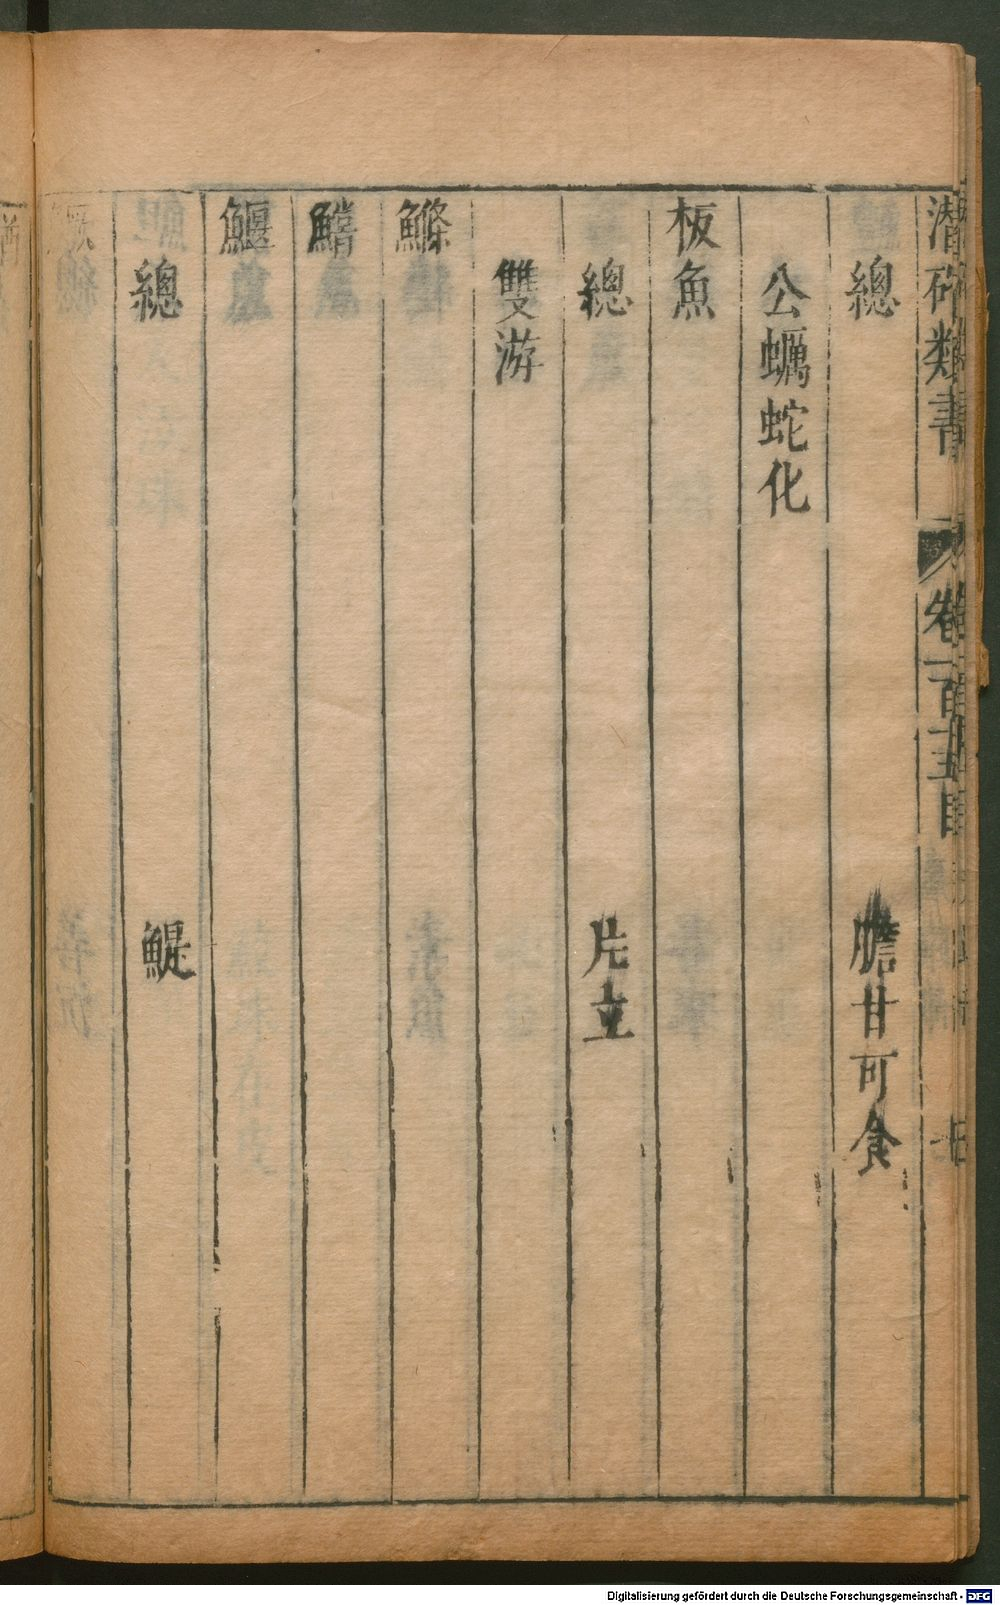 潜確類書 卷一百五目
總 膽甘可食
公蠣蛇化
板魚
總 片立
雙游
鰷
鰌
鰋
總 鯷
Digitalisierung gefördert durch die Deutsche Forschungsgemeinschaft - DFG